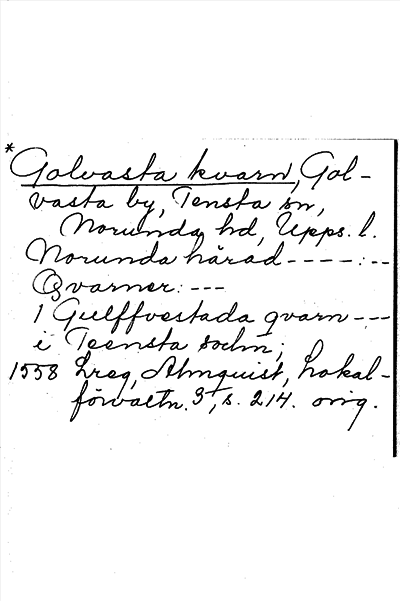 * Golvasta kvarn, Gol-
vasta by, Tensta sn,
Norunda hd, Upps. l.
Norunda härad ----:--
Qvarner: ---
1 Gulffvestada qvarn ---
i Teensta sochn;
1558 Lreg, Almquist, Lokal-
förvaltn. 3, s. 214. orig.